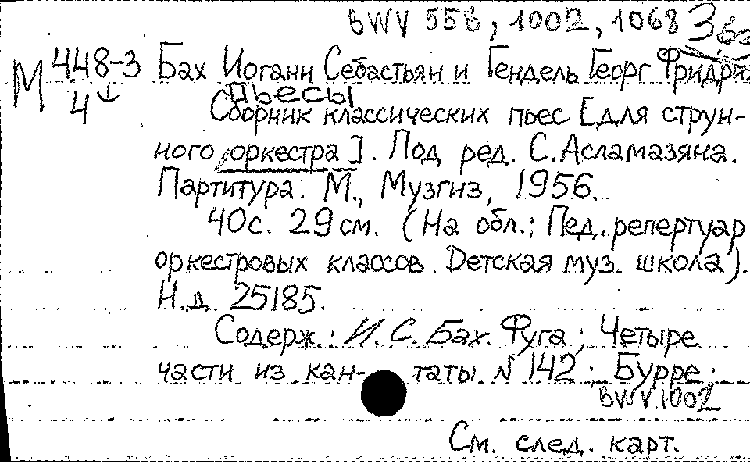 BWV 556, 1002, 1068
М 448-3 Бах Иоганн Себастьян и Гендель Георг Фридрих
4 пьесы
Сборник классических пьес [для струн-
ного оркестра]. Под ред. С. Асламазяна.
Партитура. М., Музгиз, 1956.
40с. 29 см. (На обл.: Пед. репертуар
оркестровых классов. Детская муз. школа).
Н.д. 25185.
Содерж.: И. С. Бах. Фуга; Четыре
части из кантаты N 142; Бурре;
BWV 1002
См. след. карт.